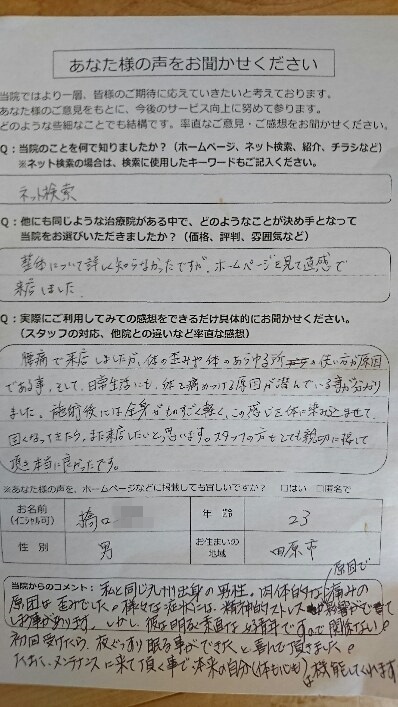 あなた様の声をお聞かせください
当院ではより一層、皆様のご期待に応えていきたいと考えております。
あなた様のご意見をもとに、今後のサービス向上に努めて参ります。
どのような些細なことでも結構です。率直なご意見・ご感想をお聞かせください。
Q：当院のことを何で知りましたか？（ホームページ、ネット検索、紹介、チラシなど）
※ネット検索の場合は、検索に使用したキーワードもご記入ください。
ネット検索
Q：他にも同じような治療院がある中で、どのようなことが決め手となって
当院をお選びいただきましたか？（価格、評判、雰囲気など）
整体について詳しく知らなかったですが、ホームページを見て直感で
来店しました。
Q：実際にご利用してみての感想をできるだけ具体的にお聞かせください。
（スタッフの対応、他院との違いなど率直な感想）
腰痛で来店しましたが、体の歪みや体のあらゆる所の使い方が原因
である事、そして、日常生活にも、体を痛めつける原因が潜んでいる事が分かり
ました。施術後には全身がものすごく軽く、この感じを体に染み込ませて、
固くなってきたら、また来店したいと思います。スタッフの方もとても親切に接して
頂き本当に良かったです。
※あなた様の声を、ホームページなどに掲載しても宜しいですか？ □はい □匿名で
お名前
（イニシャル可）
橋口
年 齢
23
性 別
男
お住まいの
地域
田原市
当院からのコメント：私と同じ九州出身の男性。肉体的な痛みの
原因は歪みでした。様々な症状には、精神的ストレスが原因で
影響がでて
しまう事があります。しかし、彼は明るく素直な好青年ですので関係ない。
初回受けたら、夜ぐっすり眠る事ができたと喜んで頂きました。
たまに、メンテナンスに来て頂く事で本来の自分（体も心も）は機能してくれます